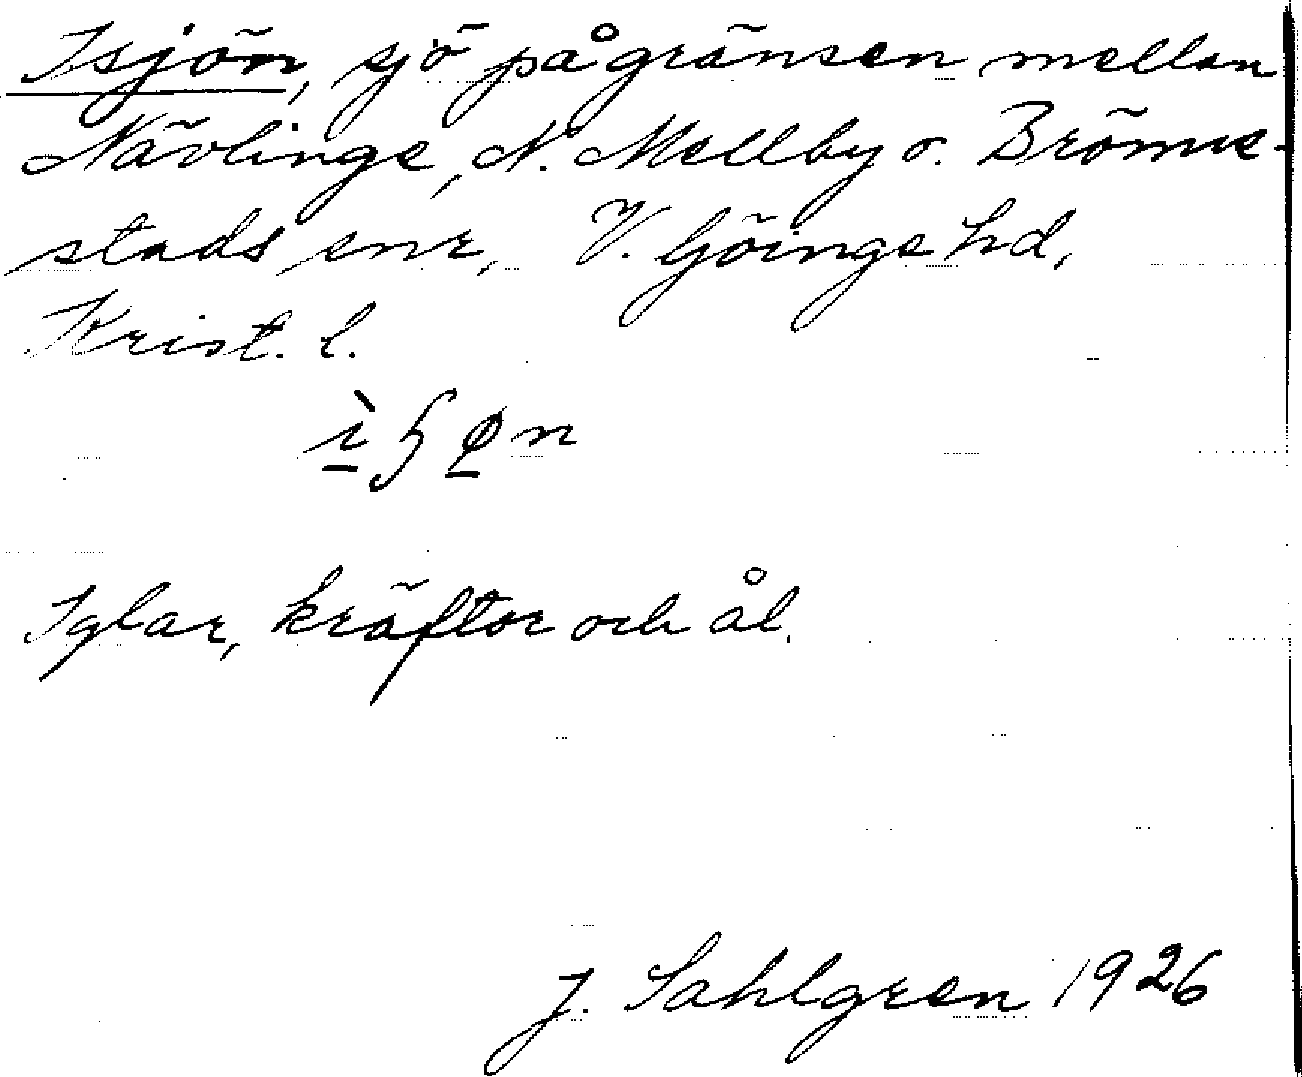 Isjön, sjö på gränsen mellan
Nävlinge, N. Mellby o. Brönne-
stads snr, V. Göinge hd,
Krist. l.
Iglar, kräftor och ål.
J. Sahlgren 1926